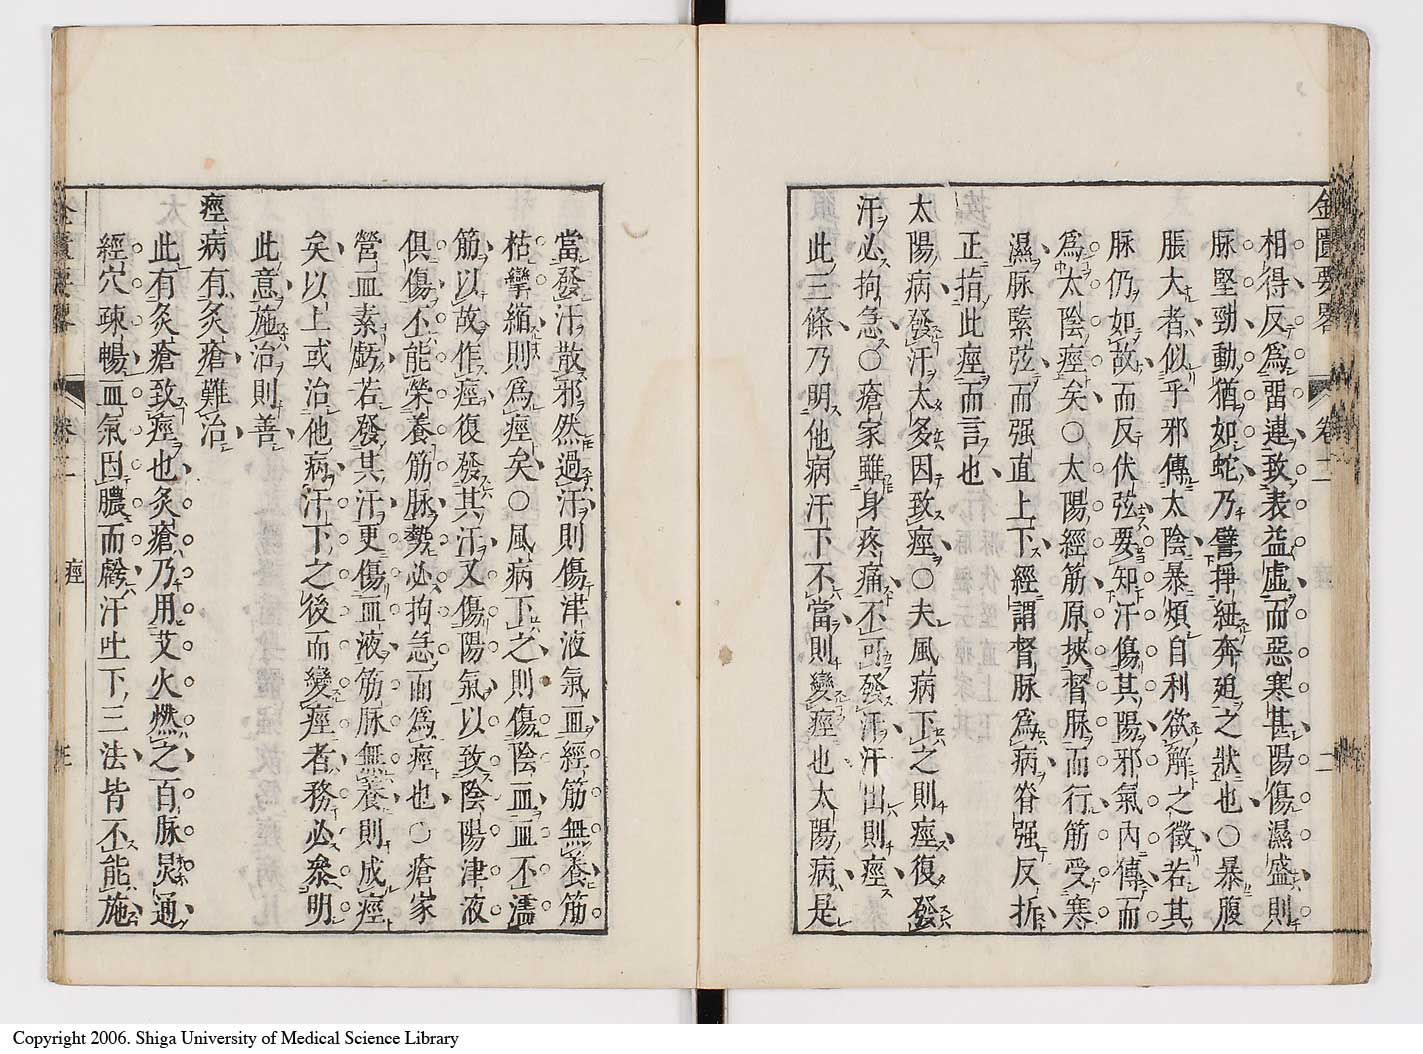 金匱要畧 卷二 二
相得反爲畱連致表益虛而惡寒甚陽傷濕盛則
脉堅勁動猶如蛇乃譬掙紐奔廹之狀也〇暴腹
脹大者似乎邪傳太陰暴煩自利欲解之徵若其
脉仍如故而反伏弦要知汗傷其陽邪氣內傳而
爲太陰痙矣〇太陽經筋原挾督脉而行筋受寒
濕脉緊弦而强直上下經謂督脉爲病脊强反折
正指此痙而言也
太陽病發汗太多因致痙〇夫風病下之則痙復發
汗必拘急〇瘡家雖身疼痛不可發汗汗出則痙
此三條乃明他病汗下不當則變痙也太陽病是
當發汗散邪然過汗則傷津液氣血經筋無養筋
枯攣縮則爲痙矣〇風病下之則傷陰血血不濡
筋以故作痙復發其汗又傷陽氣以致陰陽津液
俱傷不能榮養筋脉勢必拘急而爲痙也〇瘡家
營血素虧若發其汗更傷血液筋脉無養則成痙
矣以上或治他病汗下之後而變痙者務必衆明
此意施治則善
痙病有灸瘡難治
此有灸瘡致痙也灸瘡乃用艾火燃之百脉炅通
經穴疎暢血氣因膿而虧汗吐下三法皆不能施
金匱要畧 卷二 痙
Copyright 2006. Shiga University of Medical Science Library